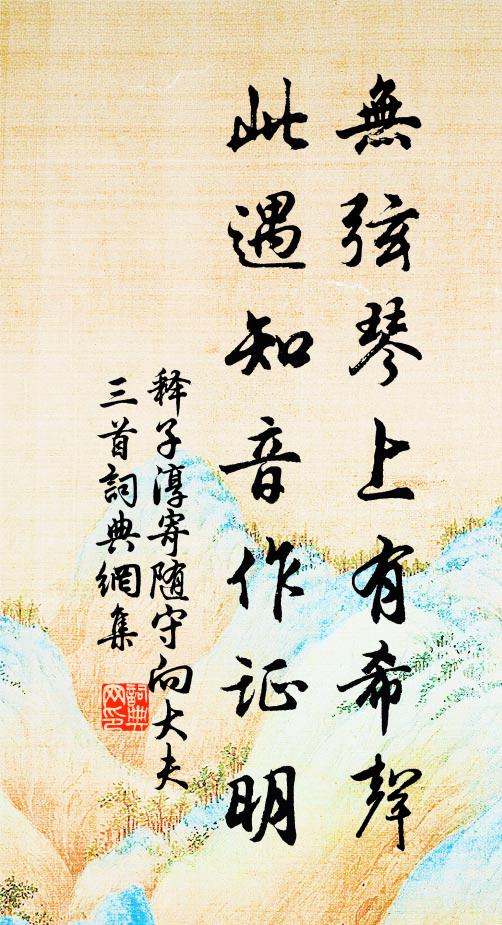 無弦琴上有希聲
此遇知音作证明
释子淳寄随守向大夫
三首詞典網集
詞典
网印